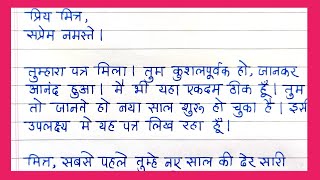 प्रिय मित्र,
सप्रेम नमस्ते।
तुम्हारा पत्र मिला। तुम कुशलपूर्वक हो, जानकर
आनंद हुआ। मै भी यहा एकदम ठीक हूँ। तुम
तो जानते हो नया साल शुरू हो चुका है। इसी
उपलक्ष्य मे यह पत्र लिख रहा हूँ।
मित्र, सबसे पहले तुम्हे नए साल की ढेर सारी